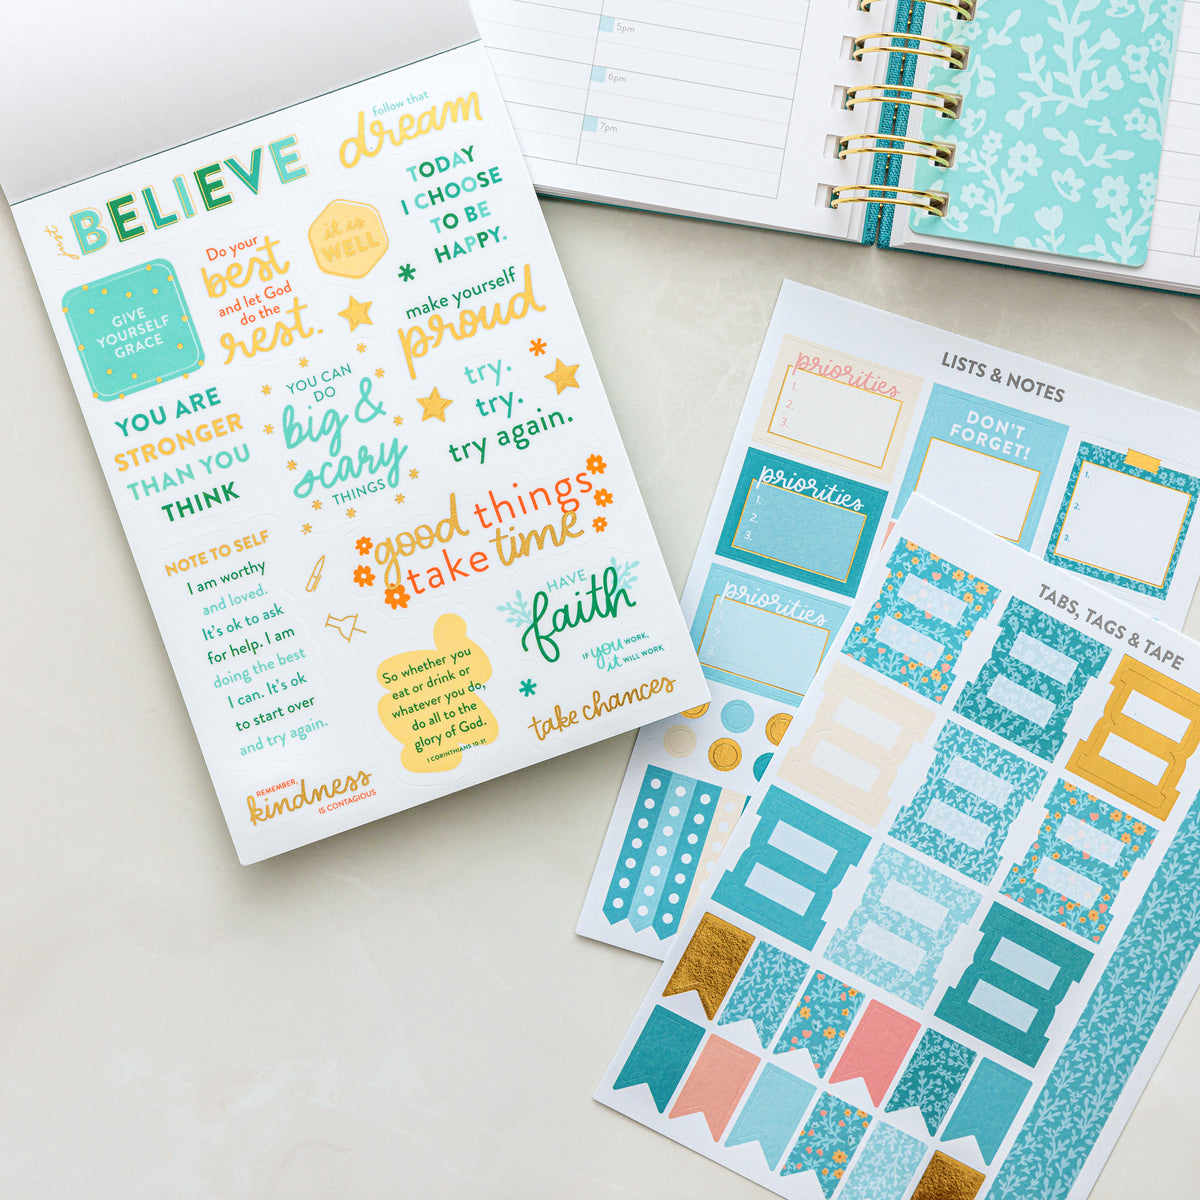 just BELIEVE
follow that
dream
TODAY
I CHOOSE
TO BE
HAPPY.
it is
WELL
Do your
best
and let God
do the
rest.
GIVE
YOURSELF
GRACE
make yourself
proud
YOU CAN
DO
big &
scary
THINGS
try.
try.
try again.
YOU ARE
STRONGER
THAN YOU
THINK
good things
take time
NOTE TO SELF
I am worthy
and loved.
It's ok to ask
for help. I am
doing the best
I can. It's ok
to start over
and try again.
HAVE
faith
IF you WORK,
it WILL WORK
So whether you
eat or drink or
whatever you do,
do all to the
glory of God.
1 CORINTHIANS 10:31
take chances
REMEMBER,
kindness
IS CONTAGIOUS
5pm
6pm
7pm
LISTS & NOTES
priorities
1.
2.
3.
DON'T
FORGET!
1.
2.
3.
priorities
1.
2.
3.
priorities
1.
2.
3.
TABS, TAGS & TAPE